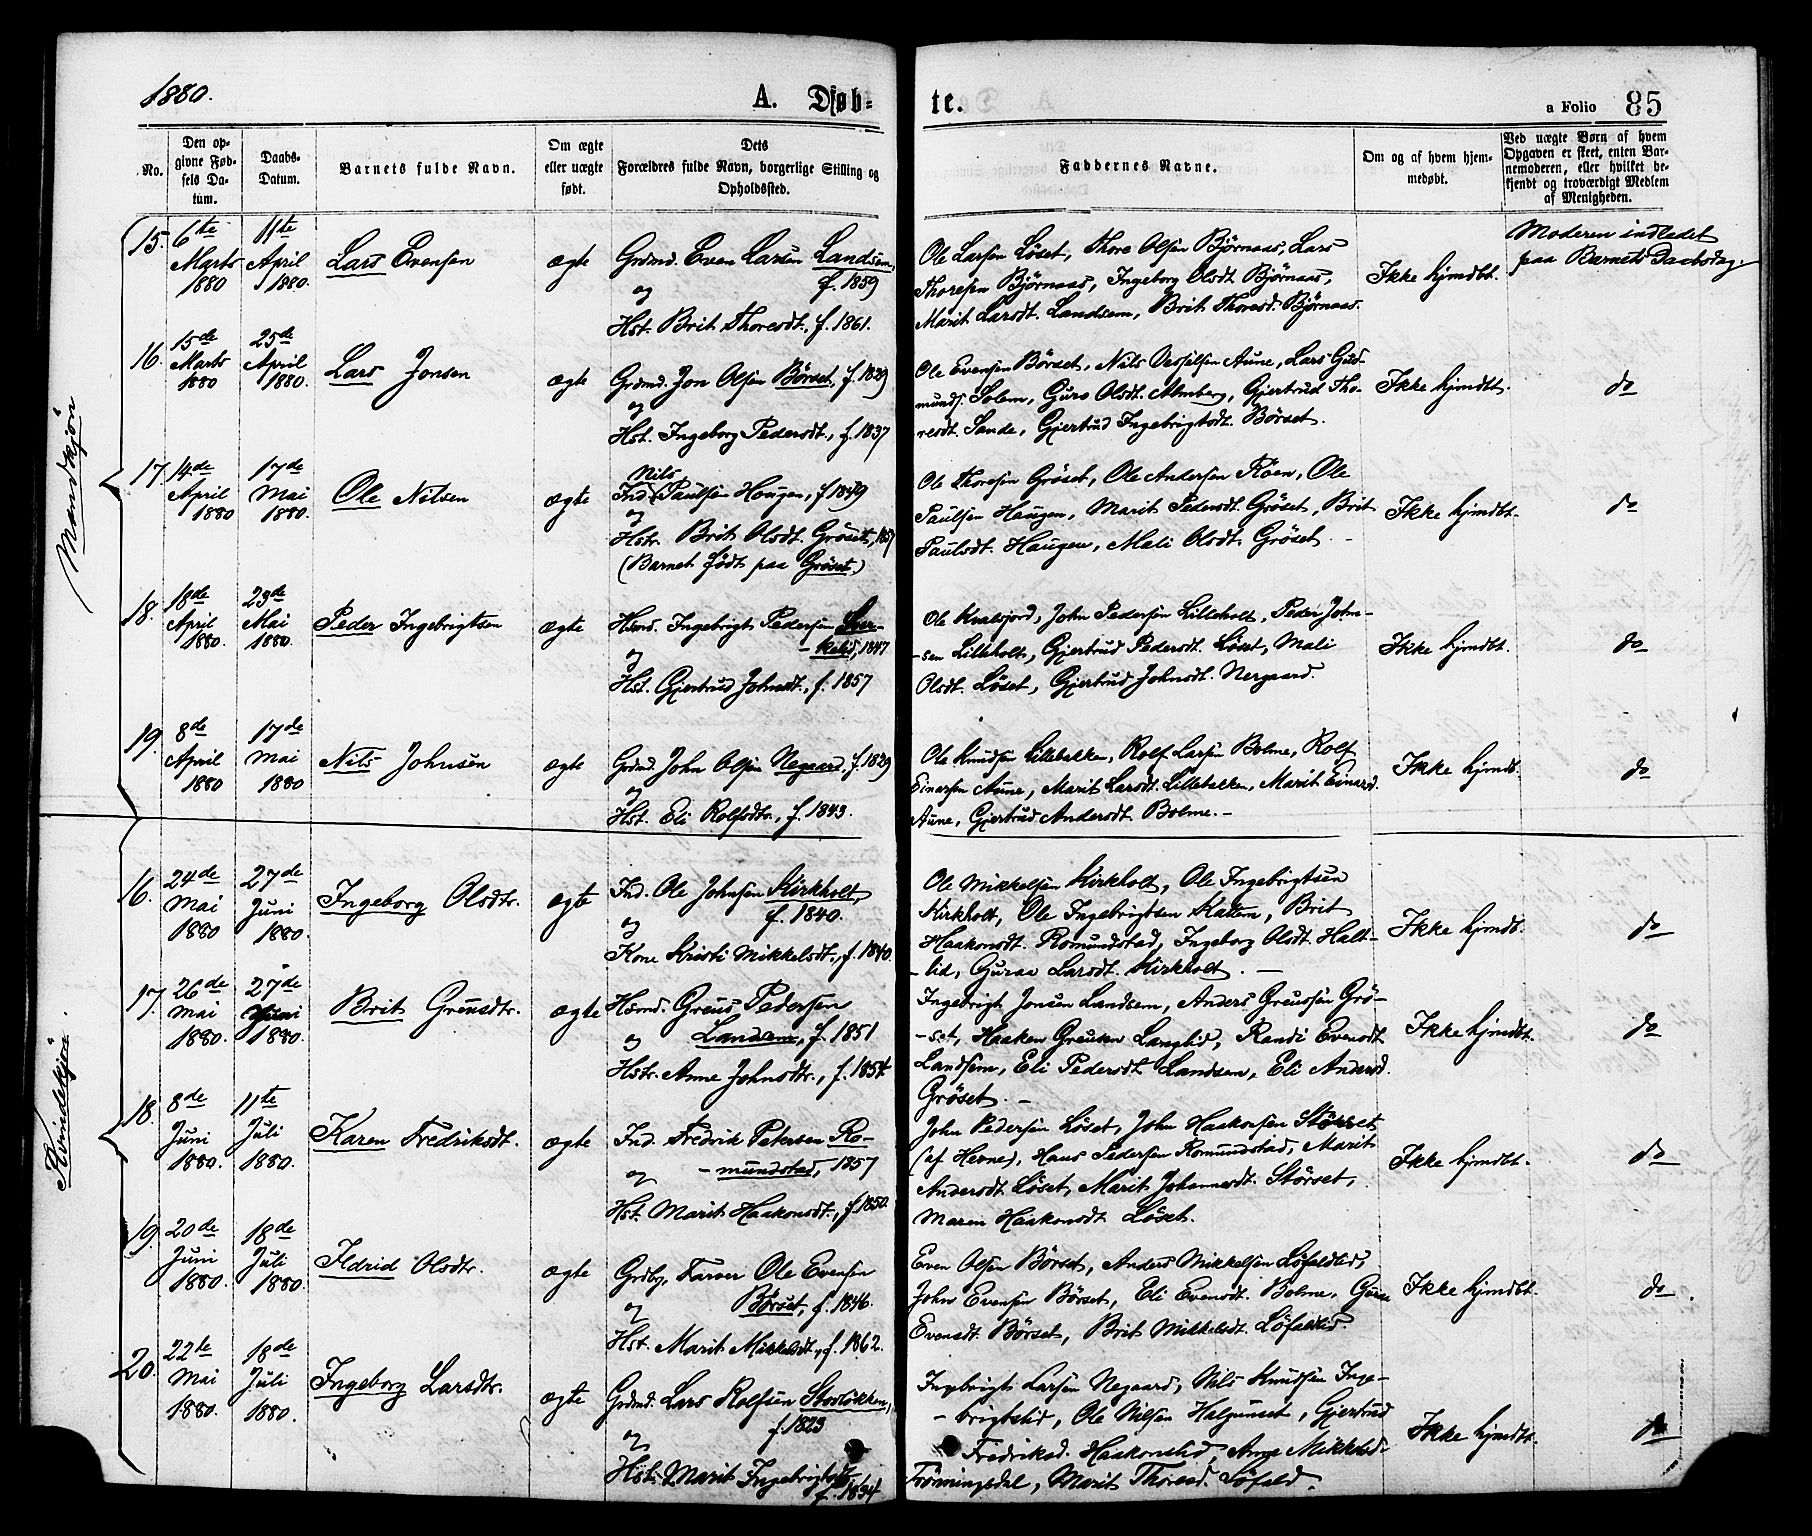 1880.
A. Døb-
te.
a Folio 85
No.
Den op-
givne Fød-
sels Da-
tum.
Daabs-
Datum.
Barnets fulde Navn.
Om ægte
eller uægte
født.
Dets
Forældres fulde Navn, borgerlige Stilling og
Opholdssted.
Faddernes Navne.
Om og af hvem hjem-
medøbt.
Ved uægte Børn af hvem
Opgaven er skeet, enten Bar-
nemoderen, eller hvilket be-
kjendt og troværdigt Medlem
af Menigheden.
Mandkjøn
15.
6te
Marts
1880
11te
April
1880.
Lars Evensen
ægte
Grdmd. Even Larsen Landsem,
f. 1859
og
Hst. Brit Thoresdt., f. 1861.
Ole Larsen Løset, Thore Olsen Bjørnaas, Lars
Thoresen Bjørnaas, Ingeborg Olsdt. Bjørnaas,
Marit Larsdt. Landsem, Brit Thoresd. Bjørnaas.
Ikke hjmdbt.
Moderen indledet
paa Barnets Daabsdag.
16.
15de
Marts
1880
25de
April
1880.
Lars Jonsen
ægte
Grdmd. Jon Olsen Børset, f. 1829
og
Hst. Ingeborg Pedersdt., f. 1837
Ole Evensen Børset, Nils Vesselsen Aune, Lars Gud-
munds. Solem, Guro Olsdt. Almberg, Gjertrud Tho-
resdt. Sande, Gjertrud Ingebrigtsdt. Børset.
Ikke hjmdbt.
do
17.
14de
April
1880
17de
Mai
1880.
Ole Nilsen
ægte
Nils
Ind. Paulsen Haugen, f 1849
og
Hstr. Brit Olsdt. Grøset, 1857
(Barnet født paa Grøset.)
Ole Thoresen Grøset, Ole Andersen Röen, Ole
Paulsen Haugen, Marit Pedersdt. Grøset, Brit
Paulsdt. Haugen, Mali Olsdt. Grøset.
Ikke hjmdbt.
do
18.
18de
April
1880.
23de
Mai
1880.
Peder Ingebrigtsen
ægte
Hsmd. Ingebrigt Pedersen
1847
og
Hst. Gjertrud Johnsdt., f. 1857
Ole John Pedersen Lilleholt, Peder John-
-sen Lilleholt, Gjertrud Pedersdt. Løset, Mali
Olsdt. Løset, Gjertrud Johnsdt. Nergaard.
Ikke hjmdbt.
do
19.
8de
April
1880
17de
Mai
1880
Nils Johnsen
ægte
Grdmd. John Olsen Negaard, f. 1829
og
Hst. Eli Rolfsdtr., f. 1843.
Ole Knudsen Lillebakken, Rolf Larsen Bolme, Rolf
Einarsen Aune, Marit Larsdt. Lillebakken, Marit Einarsd.
Aune, Gjertrud Andersdt. Bolme.
Ikke hjmdb.
do
Kvindekjøn.
16.
24de
Mai
1880
27de
Juni
1880.
Ingeborg Olsdtr.
ægte
Ind. Ole Johnsen Kirkholt,
f. 1840.
og
Kone Kristi Mikkelsdt., f. 1840.
Ole Mikkelsen Kirkholt, Ole Ingebrigtsen
Kirkholt, Ole Ingebrigtsen Kattem, Brit
Haakonsdt. Romundstad, Ingeborg Olsdt. Halt-
-lid, Guroe Larsdt. Kirkholt.
Ikke hjmdb.
do
17.
26de
Mai
1880.
27de
Juni
1880.
Brit Greusdtr.
ægte
Hsmd. Greus Pedersen
Landsem, f. 1851
og
Hstr. Anne Johnsdtr., f. 1854
Ingebrigt Jonsen Landsem, Anders Greussen Grø-
-set, Haaken Greusen Langlid, Randi Evensdt.
Landsem, Eli Pedersdt. Landsem, Eli Andersd.
Grøset.
Ikke hjmdbt.
do
18.
8de
Juni
1880.
11te
Juli
1880.
Karen Fredriksdt.
ægte
Ind. Fredrik Petersen Ro-
-mundstad, 1857
og
Hst. Marit Haakonsdt., f 1850.
John Pedersen Løset, John Haakonsen Störset
(af Hevne), Hans Pedersen Romundstad, Marit
Andersdt. Løset, Marit Johannesdt. Störset,
Maren Haakonsdt. Løset.
Ikke hjmdbt.
do
19.
20de
Juni
1880.
18de
Juli
1880.
Ildrid Olsdtr.
ægte
Grdbr, Farver Ole Evensen
Børset, f. 1846.
og
Hst. Marit Mikkelsdt., f. 1862.
Even Olsen Børset, Anders Mikkelsen Løfaldlid,
John Evensen Børset, Eli Evensdt. Bolme, Guroe
Evensdt. Børset, Brit Mikkelsdt. Løfaldlid.
Ikke hjmdbt.
do.
20.
22te
Mai
1880.
18de
Juli
1880.
Ingeborg Larsdtr.
ægte
Grdmd. Lars Rolfsen Storløkken,
f. 1823
og
Hst. Marit Ingebrigtsdt.
f. 1834
Ingebrigt Larsen Negaard, Nils Knudsen Inge-
-brigtslid, Ole Nilsen Halgunset, Gjertrud
Fredriksd. Haakonslid, Ane Mikkelsd.
Tørmingsdal, Marit Thoresd. Løfald.
Ikke hjmdbt.
do